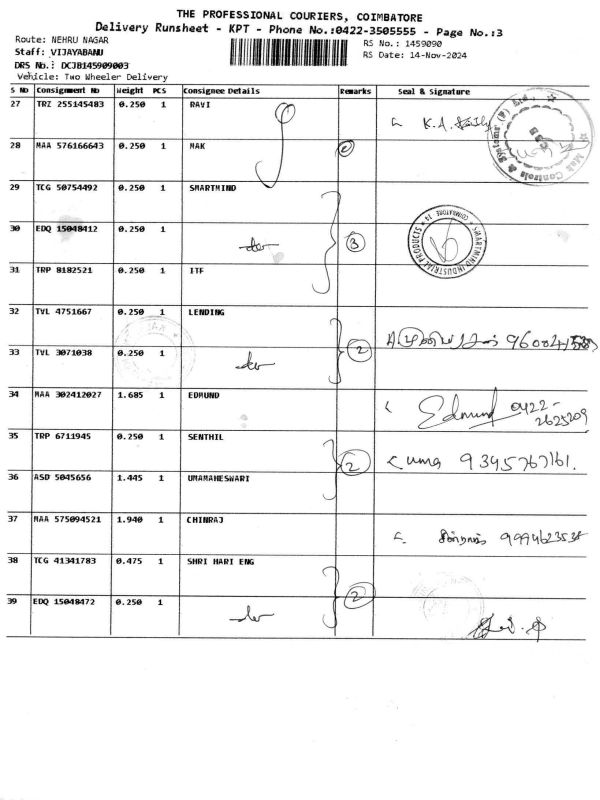 THE PROFESSIONAL COURIERS, COIMBATORE
Delivery Runsheet - KPT - Phone No.:0422-3505555 - Page No.:3
Route: NEHRU NAGAR
RS No.: 1459090
Staff: VIJAYABANU
RS Date: 14-Nov-2024
DRS No.: DCJB145909003
Vehicle: Two Wheeler Delivery
S No Consignment No Weight PCS Consignee Details Remarks Seal & Signature
27 TRZ 255145483 0.250 1 RAVI
28 MAA 576166643 0.250 1 MAK
29 TCG 50754492 0.250 1 SMARTMIND
30 EDQ 15048412 0.250 1
3
31 TRP 8182521 0.250 1 ITF
32 TVL 4751667 0.250 1 LENDING
33 TVL 3071038 0.250 1
2
34 MAA 302412027 1.685 1 EDMUND
Edmund 0422-
2625209
35 TRP 6711945 0.250 1 SENTHIL
2 uma 9345767161.
36 ASD 5045656 1.445 1 UMAMAHESWARI
37 MAA 575094521 1.940 1 CHINRAJ
38 TCG 41341783 0.475 1 SHRI HARI ENG
2
39 EDQ 15048472 0.250 1
Mak Controls & Systems (P) Ltd.,
SMARTMIND INDUSTRIAL PRODUCTS
COIMBATORE - 14